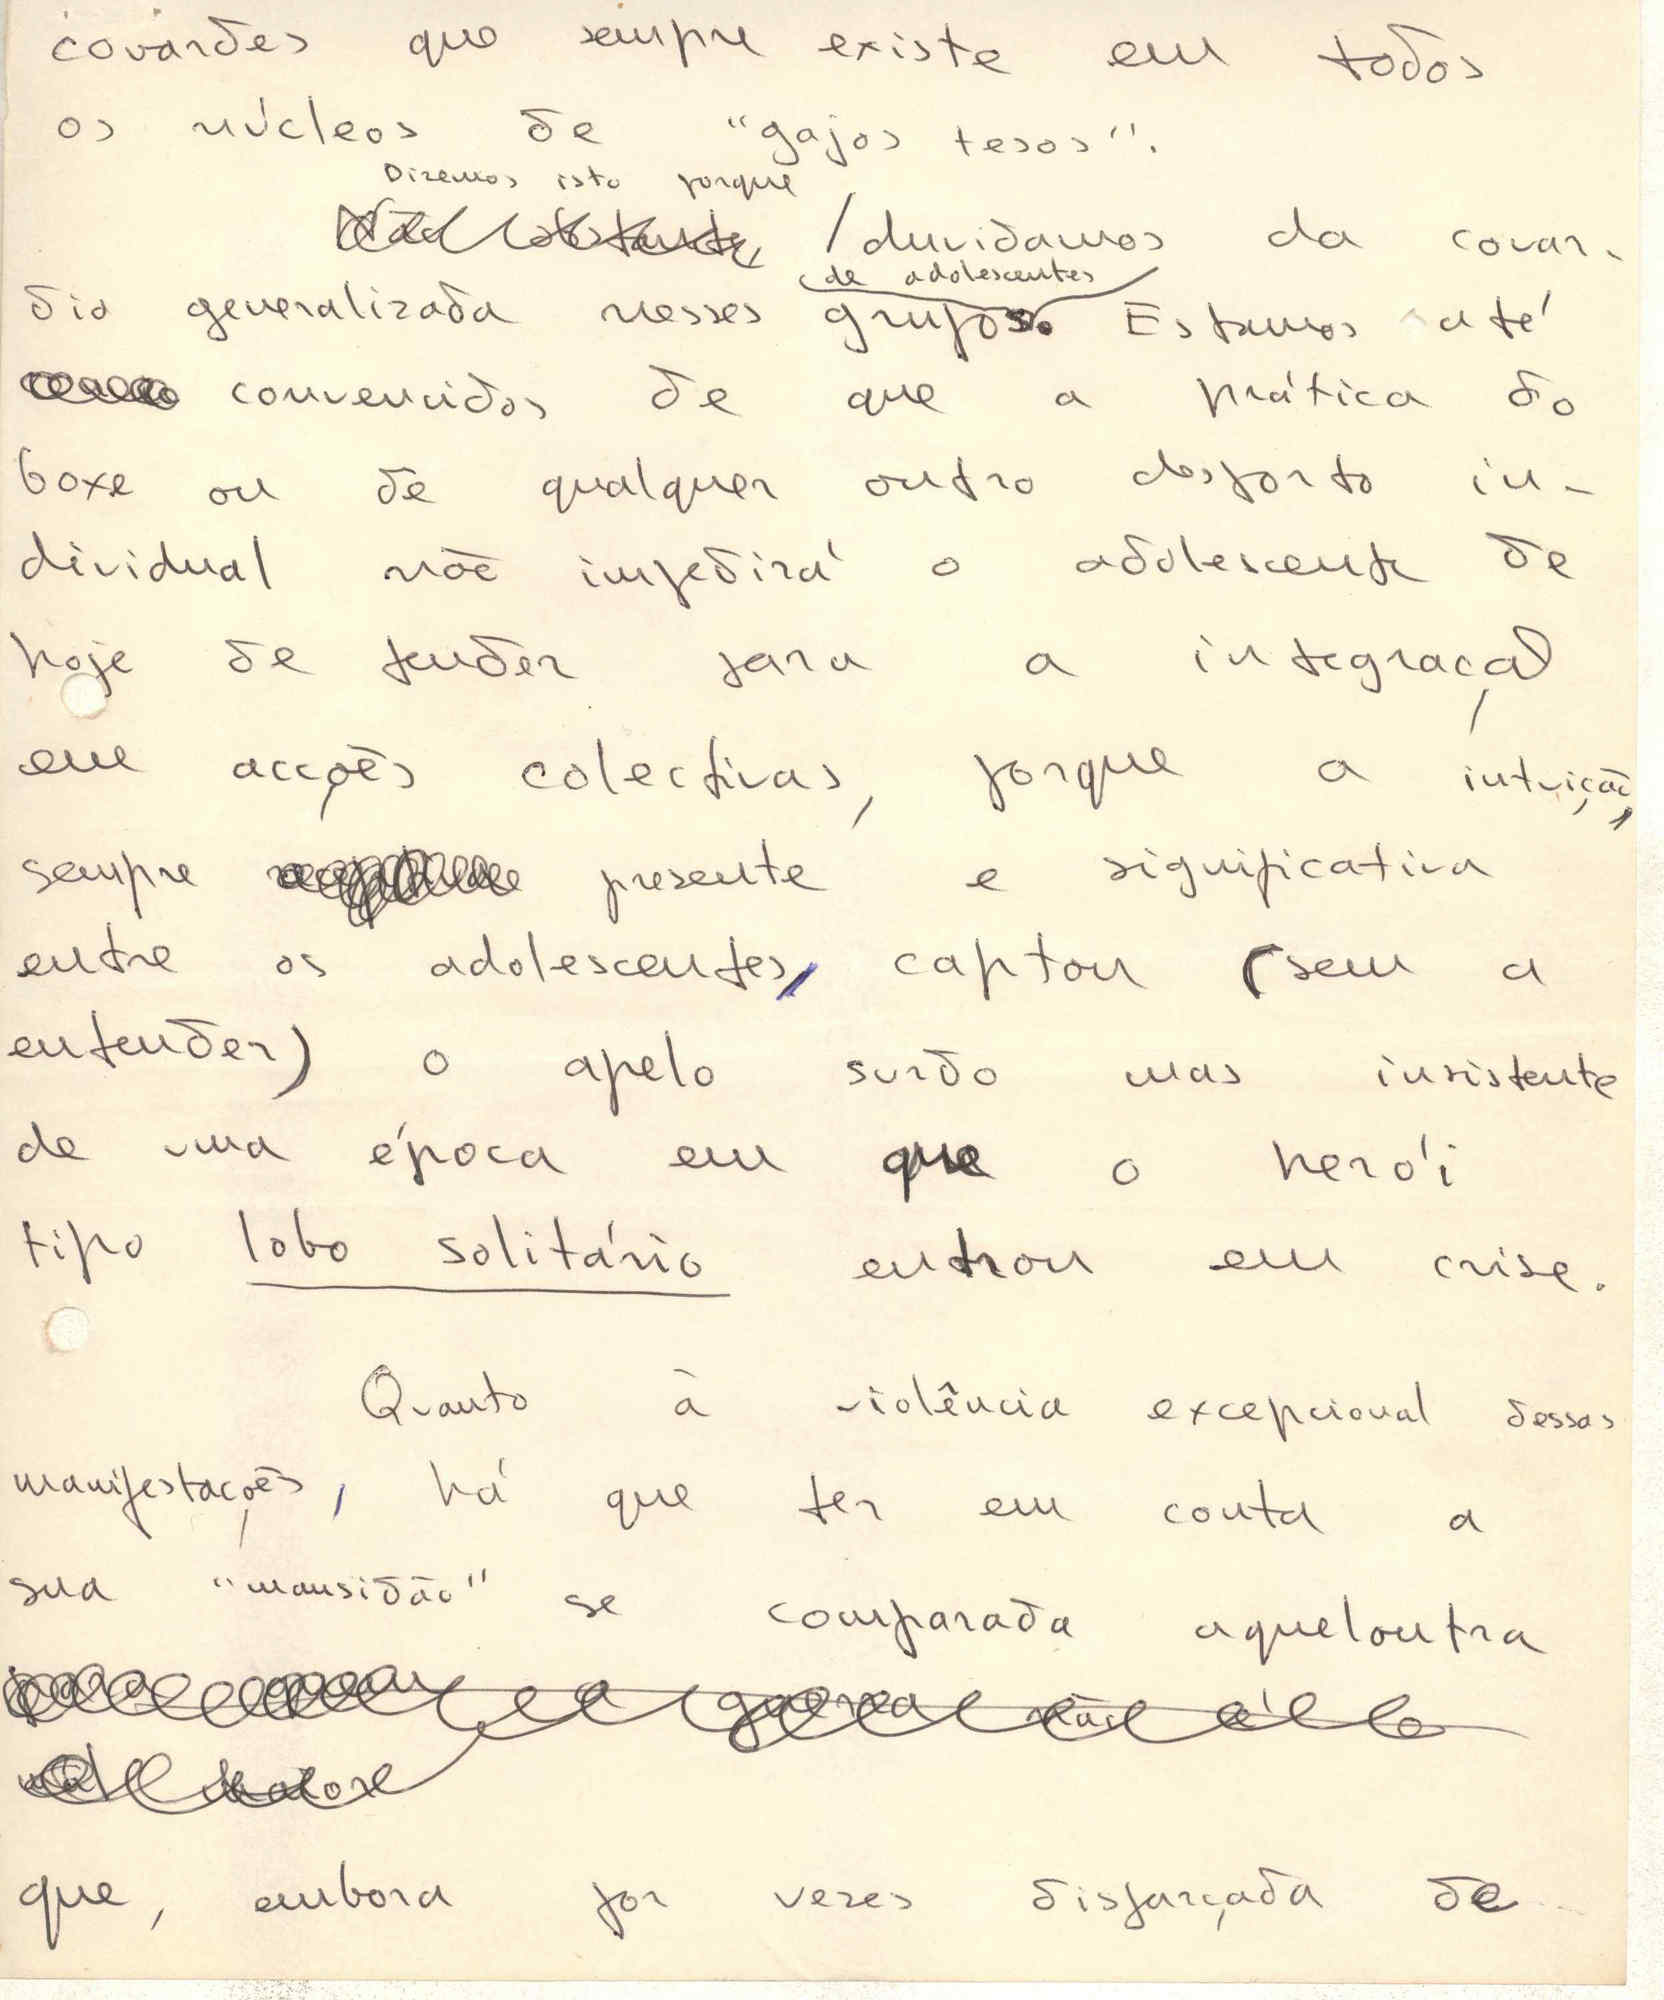 covardes que sempre existe em todos
os núcleos de "gajos tesos".
Dizemos isto porque
Não obstante /duvidamos da covar-
de adolescentes
dia generalizada nesses grupos. Estamos até
convencidos de que a prática do
boxe ou de qualquer outro desporto in-
dividual não impedirá o adolescente de
hoje de tender para a integração
em acções colectivas, porque a intuição,
sempre presente e significativa
entre os adolescentes, captou (sem a
entender) o apelo surdo mas insistente
de uma época em que o herói
tipo lobo solitário entrou em crise.
Quanto à violência excepcional dessas
manifestações, há que ter em conta a
sua "mansidão" se comparada aqueloutra
para quem a guerra não é
que, embora por vezes disfarçada de